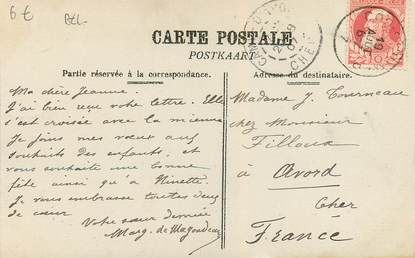 6€
CARTE POSTALE
POSTKAART
Partie réservée à la correspondance.
Adresse du destinataire.
Ma chère Jeanne.
J'ai bien reçu votre lettre. Elle
s'est croisée avec la mienne
Je joins mes vœux aux
souhaits des enfants, et
vous souhaite une bonne
fête ainsi qu'à Ninette.
Je vous embrasse toutes deux
de cœur
Votre sœur
Marg. de
Madame J. Tourneau
chez Monsieur
Filloux
à Avord
Cher
France